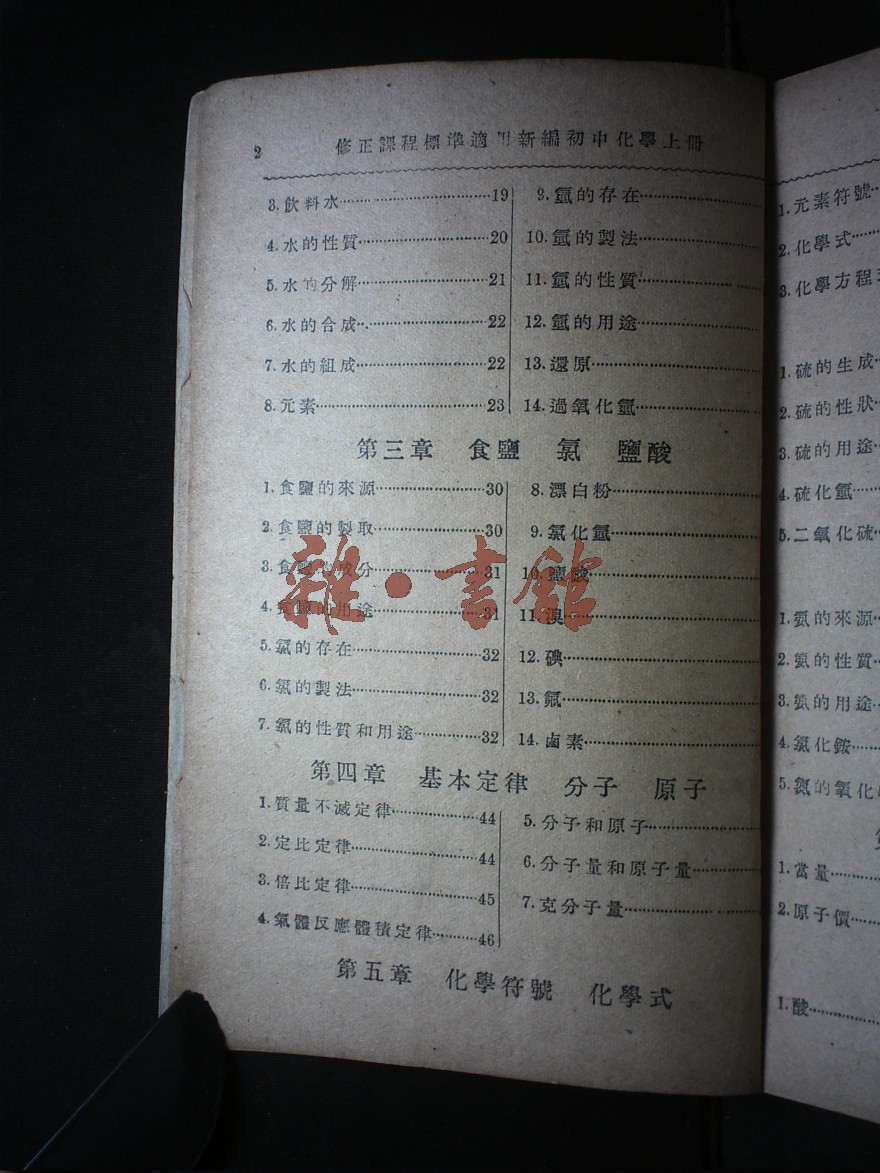 2
修正課程標準適用新編初中化學上冊
3. 飲料水 19
4. 水的性質 20
5. 水的分解 21
6. 水的合成 22
7. 水的組成 22
8. 元素 23
9. 氫的存在
10. 氫的製法
11. 氫的性質
12. 氫的用途
13. 還原
14. 過氧化氫
第三章 食鹽 氯 鹽酸
1. 食鹽的來源 30
2. 食鹽的製取 30
3. 食鹽的成分 31
4. 食鹽的用途 31
5. 氯的存在 32
6. 氯的製法 32
7. 氯的性質和用途 32
8. 漂白粉
9. 氯化氫
10. 鹽酸
11. 溴
12. 碘
13. 氟
14. 鹵素
第四章 基本定律 分子 原子
1. 質量不滅定律 44
2. 定比定律 44
3. 倍比定律 45
4. 氣體反應體積定律 46
5. 分子和原子
6. 分子量和原子量
7. 克分子量
第五章 化學符號 化學式
1. 元素符號
2. 化學式
3. 化學方程
1. 硫的生成
2. 硫的性狀
3. 硫的用途
4. 硫化氫
5. 二氧化硫
1. 氨的來源
2. 氨的性質
3. 氨的用途
4. 氯化銨
5. 氮的氧化
1. 當量
2. 原子價
1. 酸
雜·書館